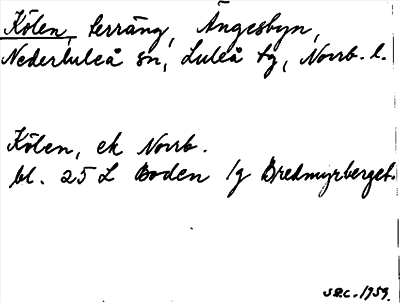 Kölen, terräng, Ängesbyn,
Nederluleå sn, Luleå tg, Norrb. l.
Kölen, ek Norrb.
bl. 25 L Boden /g Bredmyrberget.
SEC. 1959.